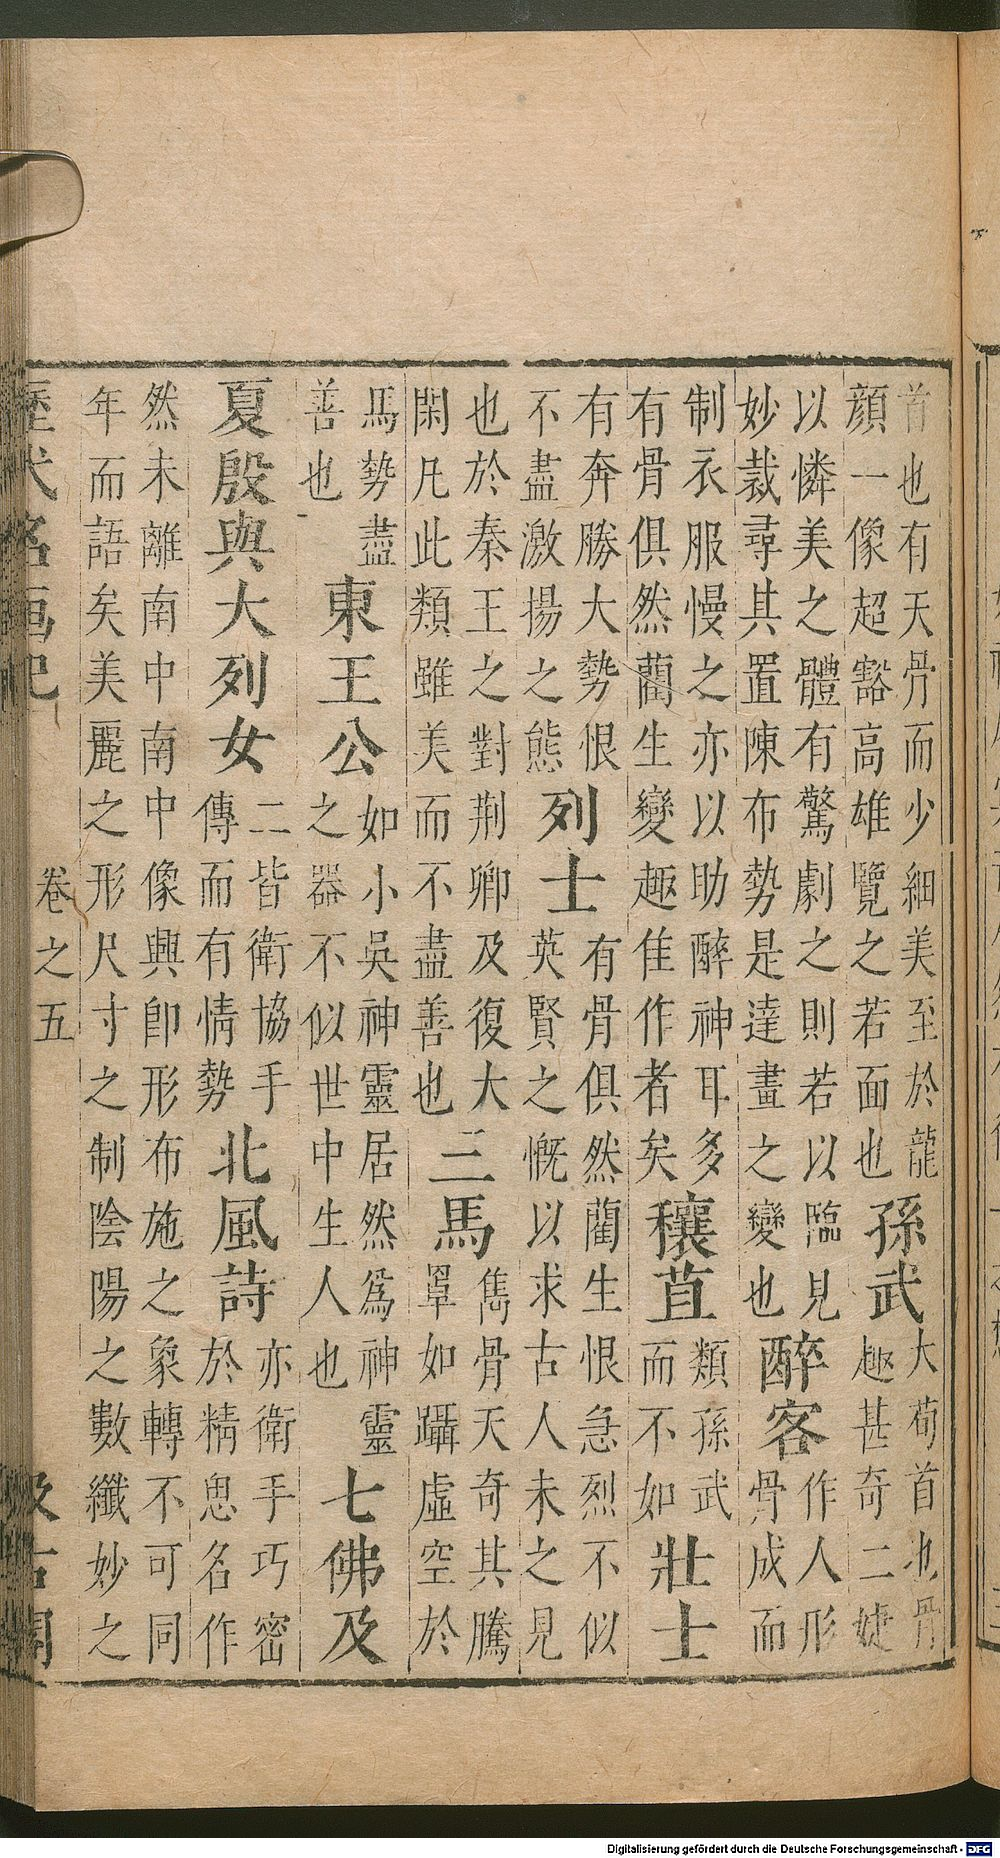 首也有天骨而少細美至於龍
顏一像超豁高雄覽之若面也
孫武
大荀首也骨
趣甚奇二婕
以憐美之體有驚劇之則若以臨見
妙裁尋其置陳布勢是達畫之變也
醉客
作人形
骨成而
制衣服慢之亦以助醉神耳多
有骨俱然藺生變趣佳作者矣
穰苴
類孫武
而不如
壯士
有奔勝大勢恨
不盡激揚之態
列士
有骨俱然藺生恨急烈不似
英賢之慨以求古人未之見
也於秦王之對荆卿及復大
閑凢此類雖美而不盡善也
三馬
雋骨天奇其騰
罩如躡虛空於
馬勢盡
善也
東王公
如小吳神靈居然爲神靈
之器不似世中生人也
七佛及
夏殷與大列女
二皆衛協手
傳而有情勢
北風詩
亦衛手巧密
於精思名作
然未離南中南中像興卽形布施之象轉不可同
年而語矣美麗之形尺寸之制陰陽之數纖妙之
歷代名畫記
卷之五
汲古閣
Digitalisierung gefördert durch die Deutsche Forschungsgemeinschaft - DFG